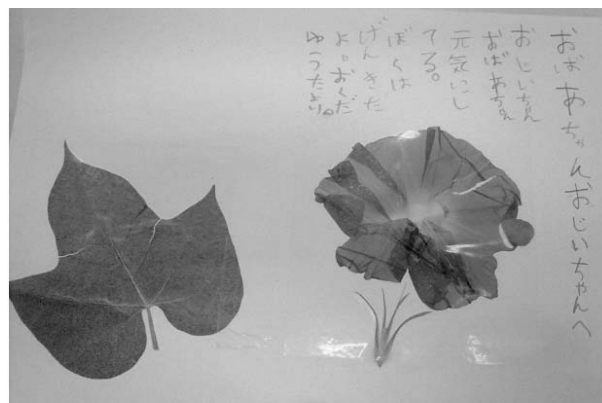 おばあちゃんおじいちゃんへ
おじいちゃん
おばあちゃん
元気にし
てる。
ぼくは
げんきだ
よ。おくだ
ゆうたより。